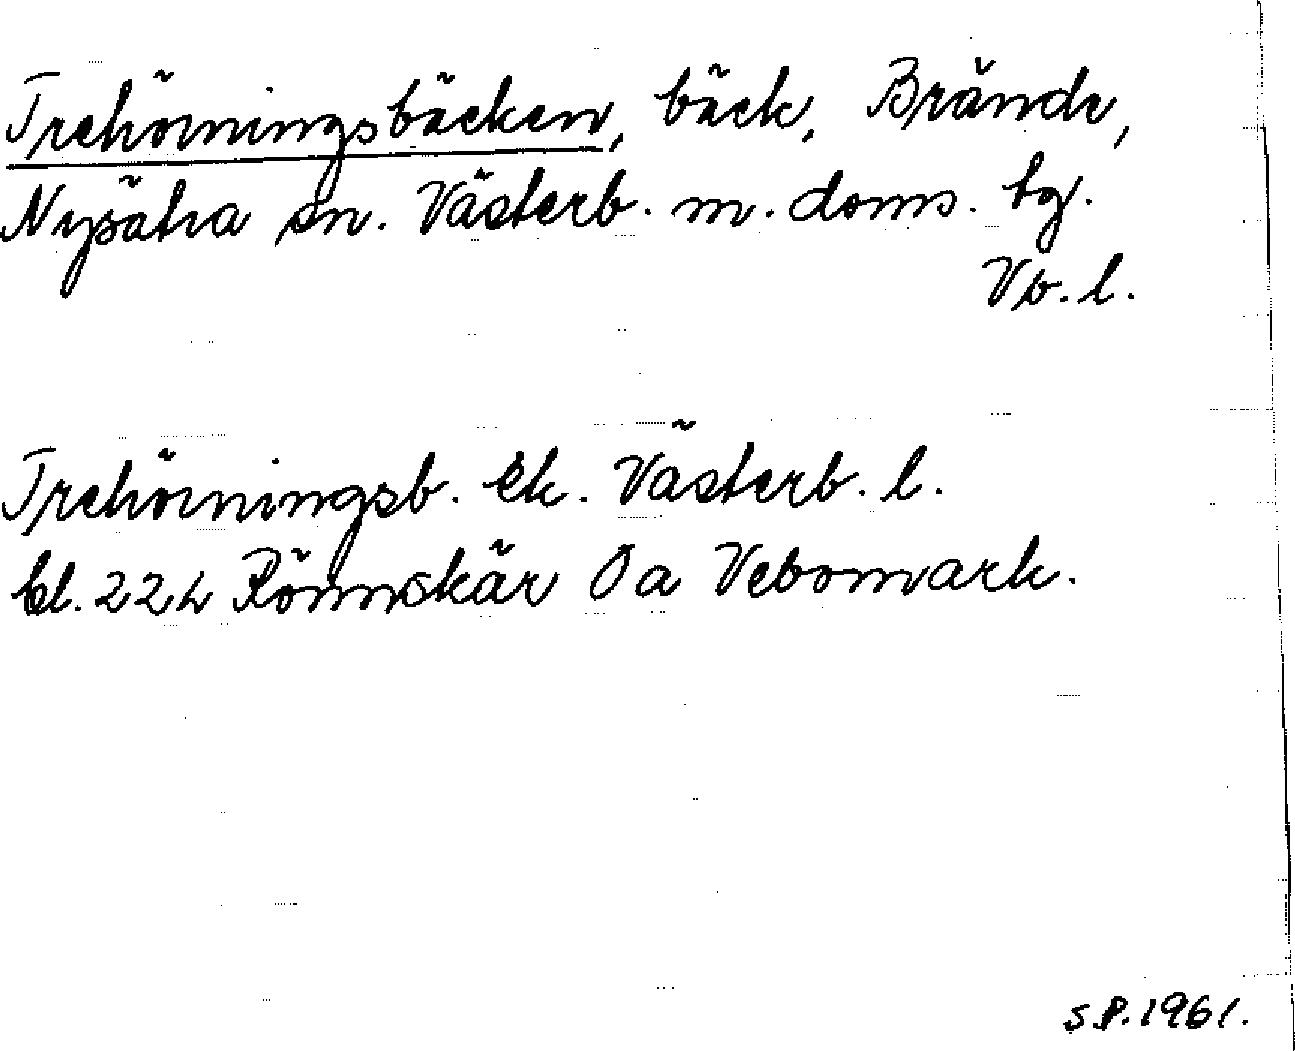 Trehörningsbäcken, bäck, Brände,
Nysätra sn. Västerb. m. doms. tg.
Vb. l.
Trehörningsb. Ek. Västerb. l.
bl. 224 Rönnskär Öa Vebomark.
S.P. 1961.